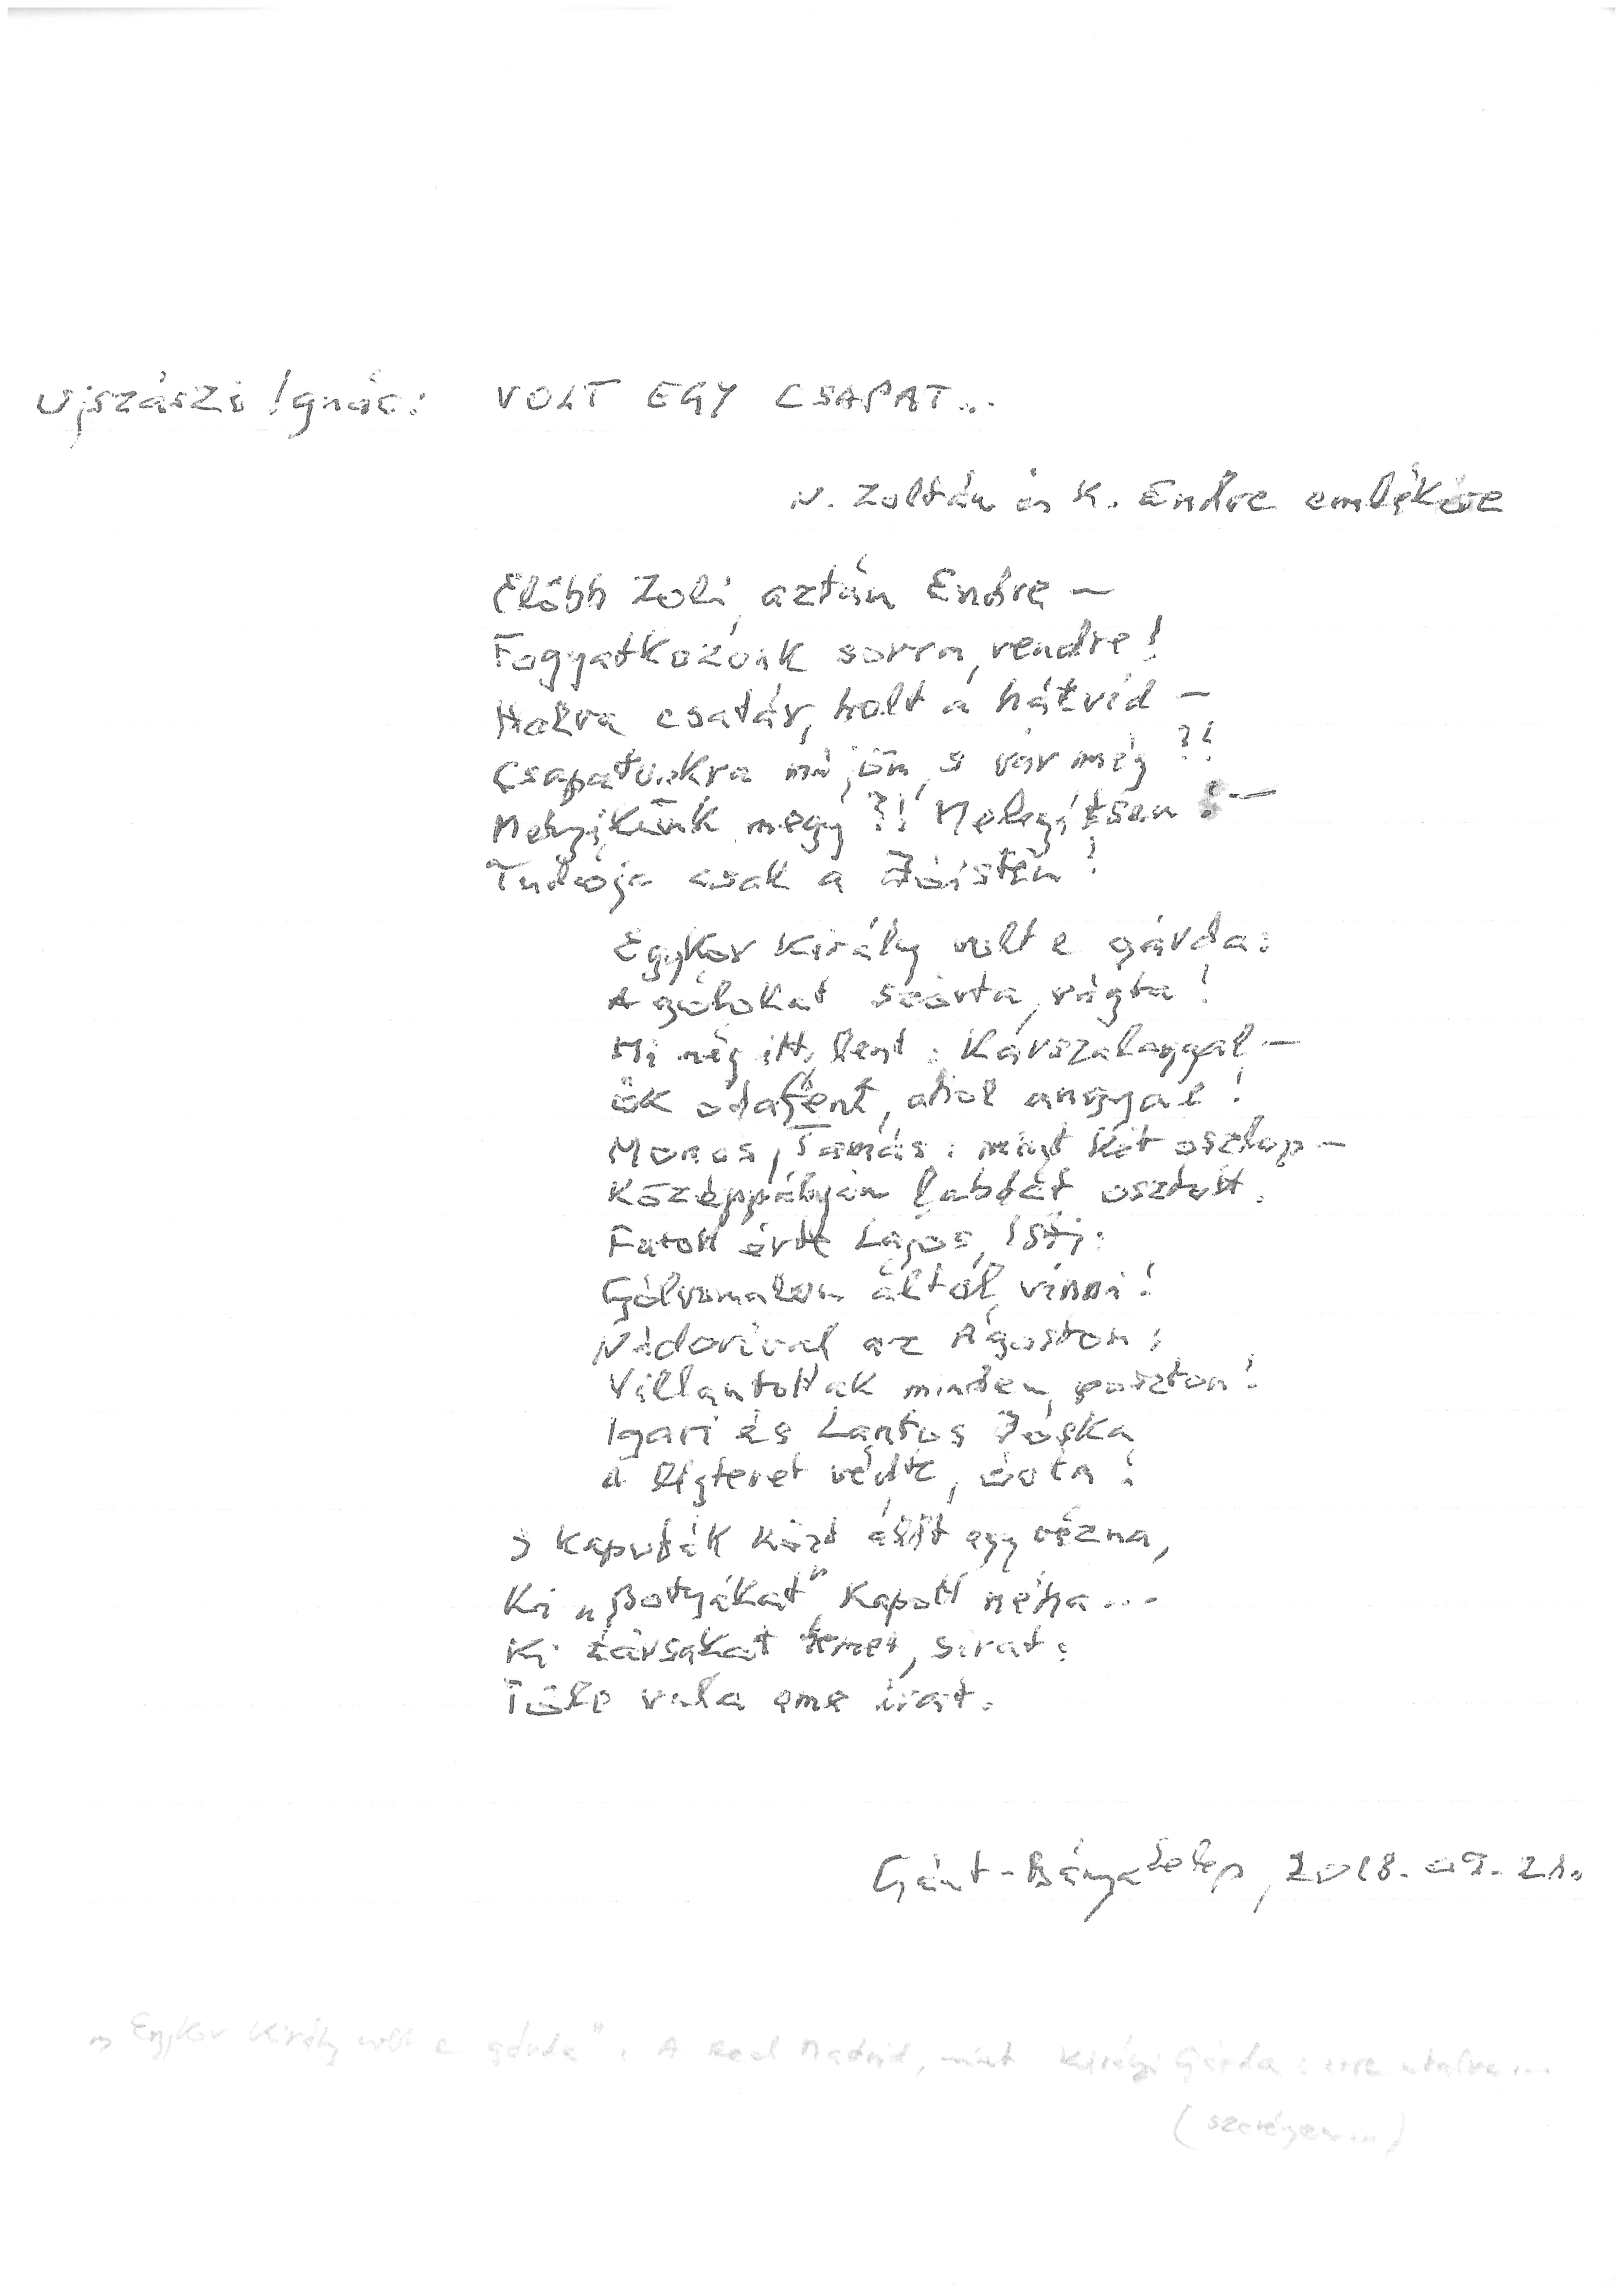 Ujszászi Ignác: VOLT EGY CSAPAT...
N. Zoltán és K. Endre emlékére
Előbb Zoli, aztán Endre –
Fogyatkozunk sorra, rendre!
Halva csatár, holt a hátvéd –
Csapatunkra mi jön, s vár még?!
Melyikünk megy?! Melegítsen! –
Tudója csak a Jóisten!
Egykor király volt e gárda:
A gólokat szórta, rúgta!
Mi még itt, lent: Karszalaggal –
ők odafent, ahol angyal!
Monos, Tamás: mint két oszlop –
Középpályán labdát osztott.
Futott érte Lajos, Isti:
Gólvonalon áltól vinni!
Nádorival az Ágoston:
Villantottak minden poszton!
Igari és Lantos Jóska
a légteret védte, óvta!
S kapufák közt állt egy vézna,
Ki „Botyákat" kapott néha...
Ki társakat temet, sirat:
Tőle vala eme irat.
Gánt-Bányatelep, 2018. 09. 21.
„Egykor király volt e gárda": A Real Madrid, mint Királyi Gárda: erre utalva...
(szerényen...)